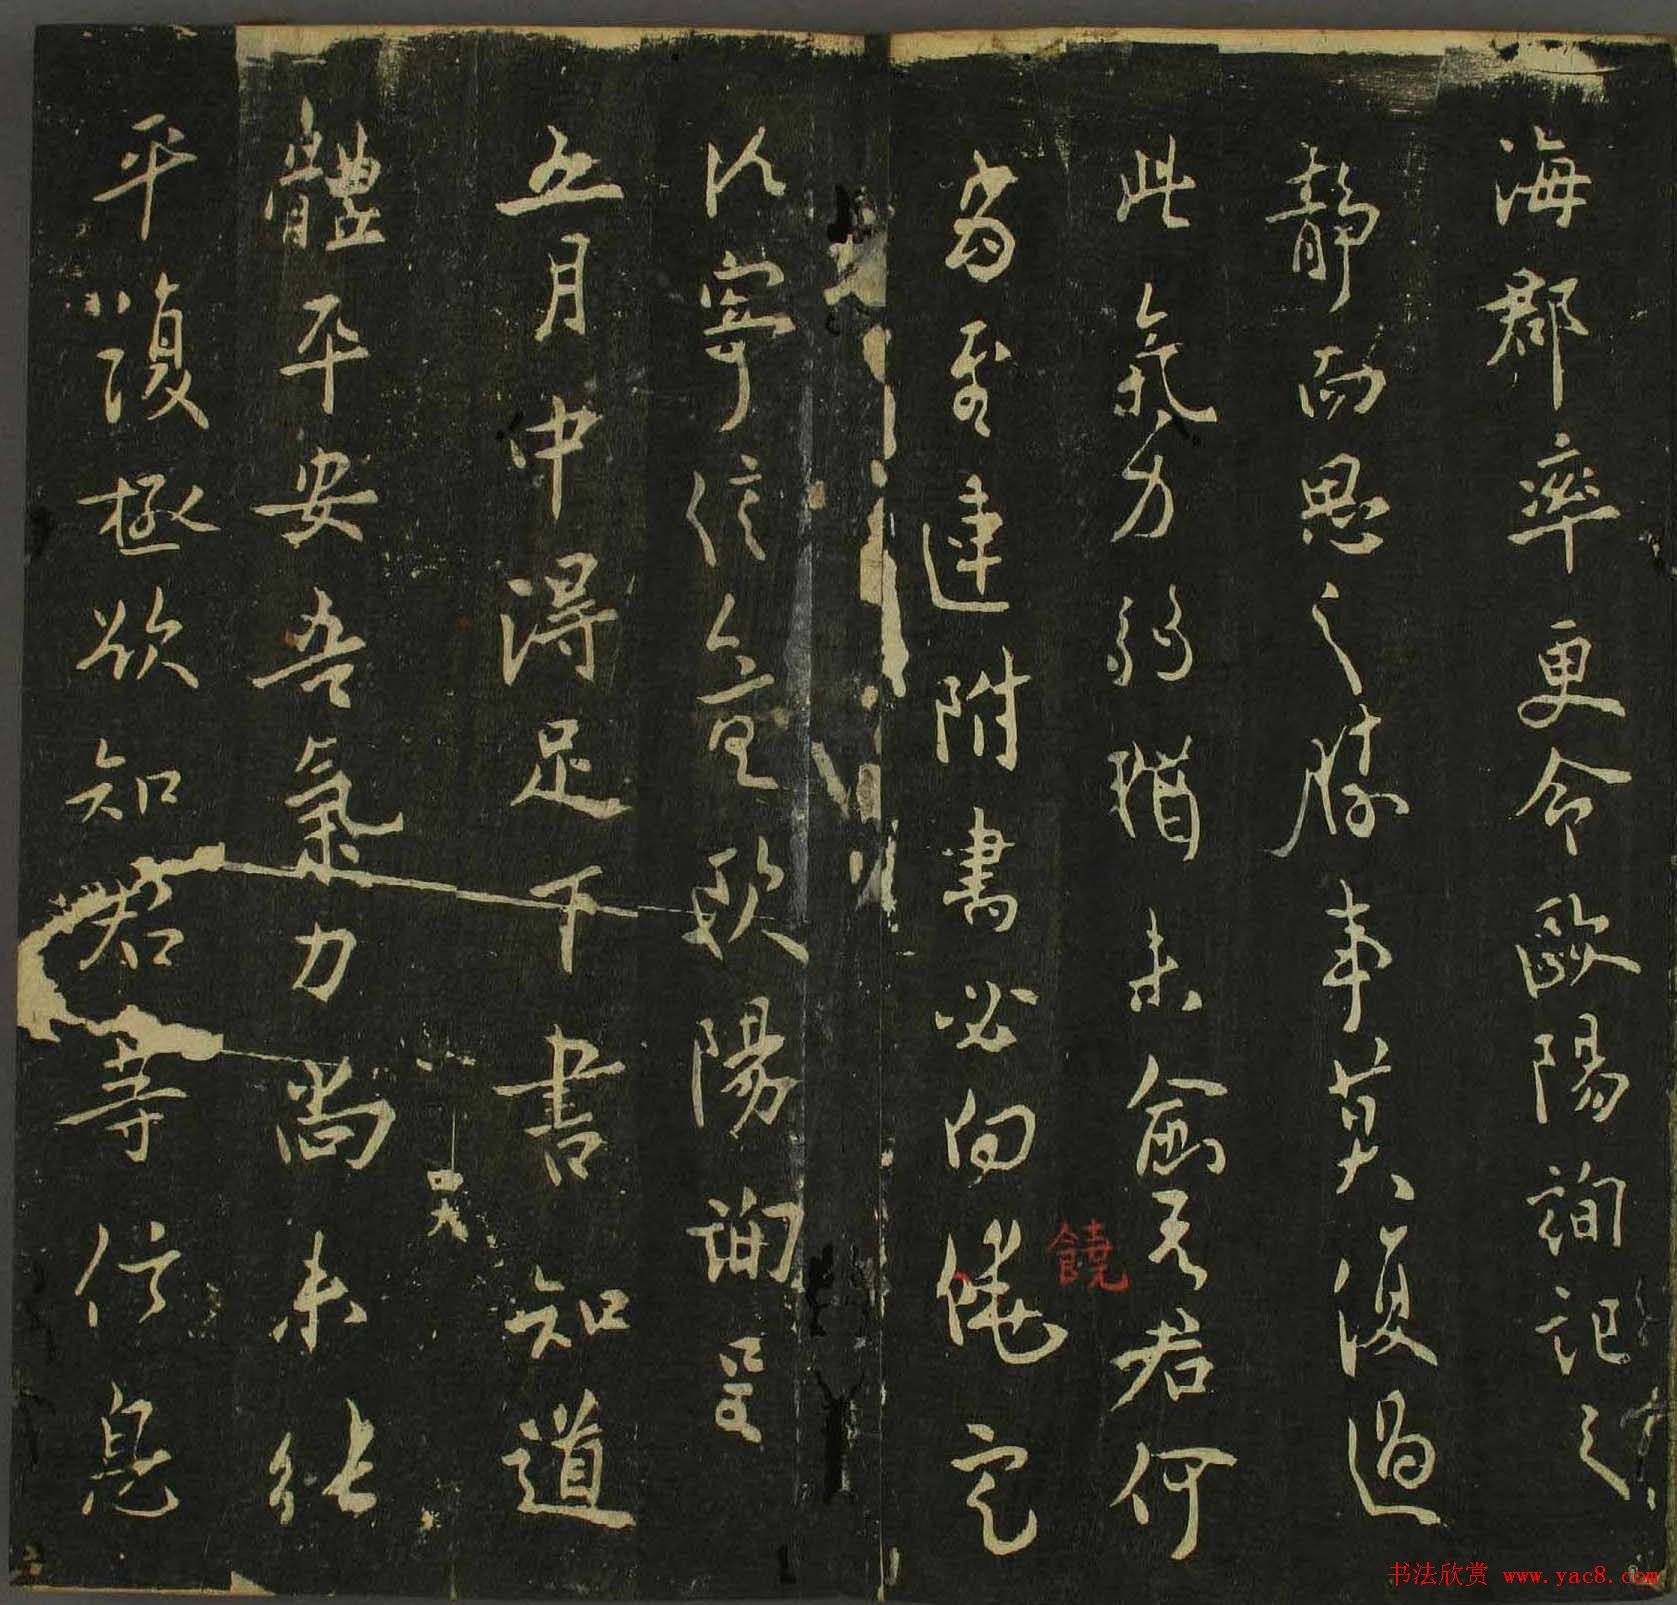 海郡率更令歐陽詢記之
靜而思之勝事莫復過
此氣力弱猶未愈吾君何
當至速附書必向饒定
以寧信宜歐陽詢呈
五月中得足下書知道
體平安吾氣力尚未能
平復極欲知君等信息
饒
书法欣赏 www.yac8.com